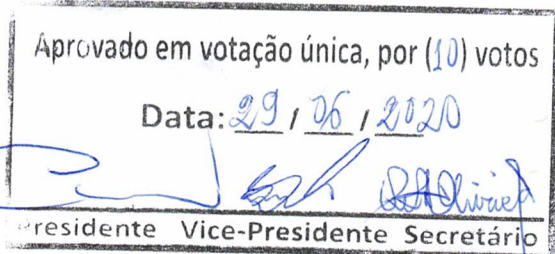 Aprovado em votação única, por (10) votos
Data: 29 / 06 / 2020
Presidente Vice-Presidente Secretário